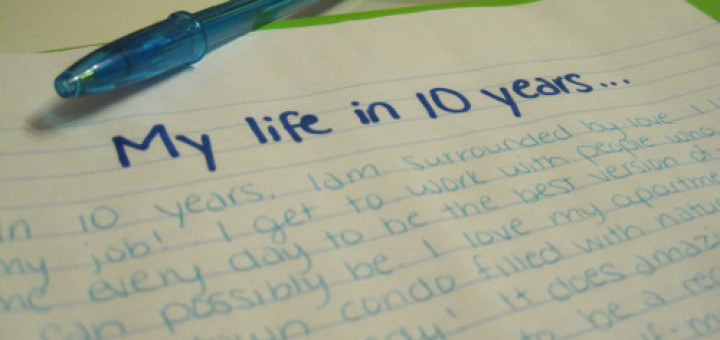 My life in 10 years...
In 10 years, I am surrounded by love I
my job! I get to work with people who
me every day to be the best version of
can possibly be I love my apartme
condo filled with natu
It does amazi
to be a